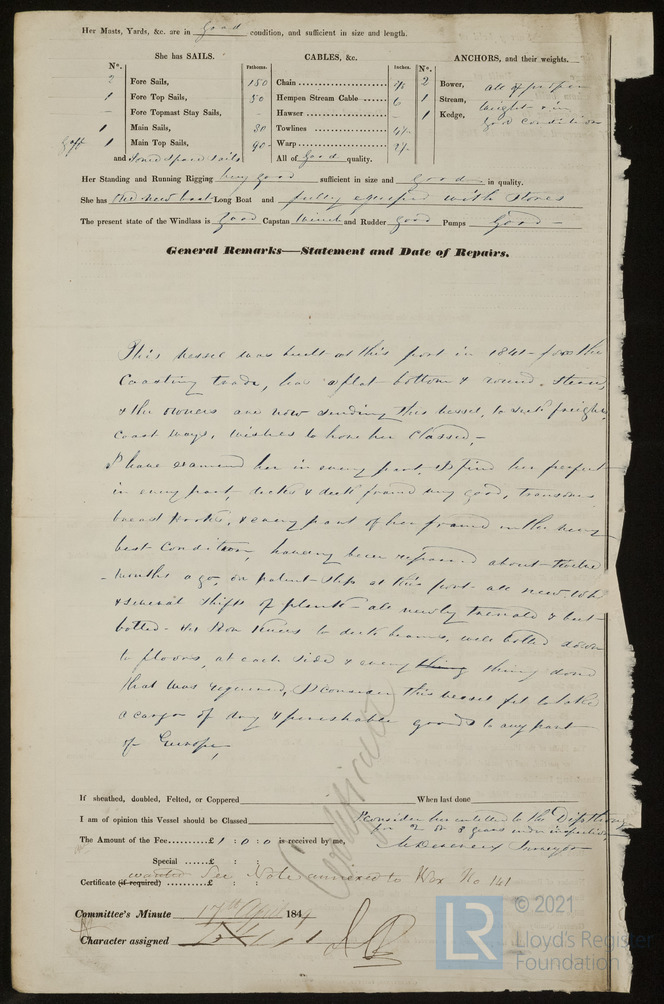 Her Masts, Yards, &c. are in Good condition, and sufficient in size and length.
She has SAILS.
CABLES, &c.
ANCHORS, and their weights.
N°.
Fathoms.
Inches.
N°.
2 Fore Sails,
150 Chain
2 Bower, all of proper
1 Fore Top Sails,
80 Hempen Stream Cable 6
1 Stream, weight & in
- Fore Topmast Stay Sails,
- Hawser -
1 Kedge, good condition
1 Main Sails,
80 Towlines
Gaft 1 Main Top Sails,
90 Warp
and Some spare sails
All of Good quality.
Her Standing and Running Rigging Very good sufficient in size and Good in quality.
She has One new boat Long Boat and fully equiped with Stores
The present state of the Windlass is Good Capstan Winch and Rudder Good Pumps Good
General Remarks—Statement and Date of Repairs.
This vessel was built at this port in 1841 for the
Coasting trade, has a flat bottom & round
& the owners are now sending this vessel, to seek freights
Coast ways, wishes to have her Classed,
I have examined her in every part & find her perfect
in every part, decks & deck frame very good, transoms
breast hooks, & every part of her frame in the very
best Condition, having been repaired about twelve
months ago, on patent slip at this port - all new
& several shifts of plank - all newly & butt
bolted - Iron knees to deck beams, well bolted down
to floors, at each side & every thing thing done
that was required, I consider this vessel fit to take
a cargo of dry & perishable goods to any part
of Europe,
Certificate
If sheathed, doubled, Felted, or Coppered When last done
I am of opinion this Vessel should be Classed I consider her entitled to the
for 2 or 3 years under inspection
The Amount of the Fee £ 1 : 0 : 0 is received by me,
Surveyor
Special £ : :
wanted See Note annexed to No 141
Certificate (if required) £ : :
Committee's Minute 17th April 1844
Character assigned
LR
© 2021
Lloyd's Register
Foundation